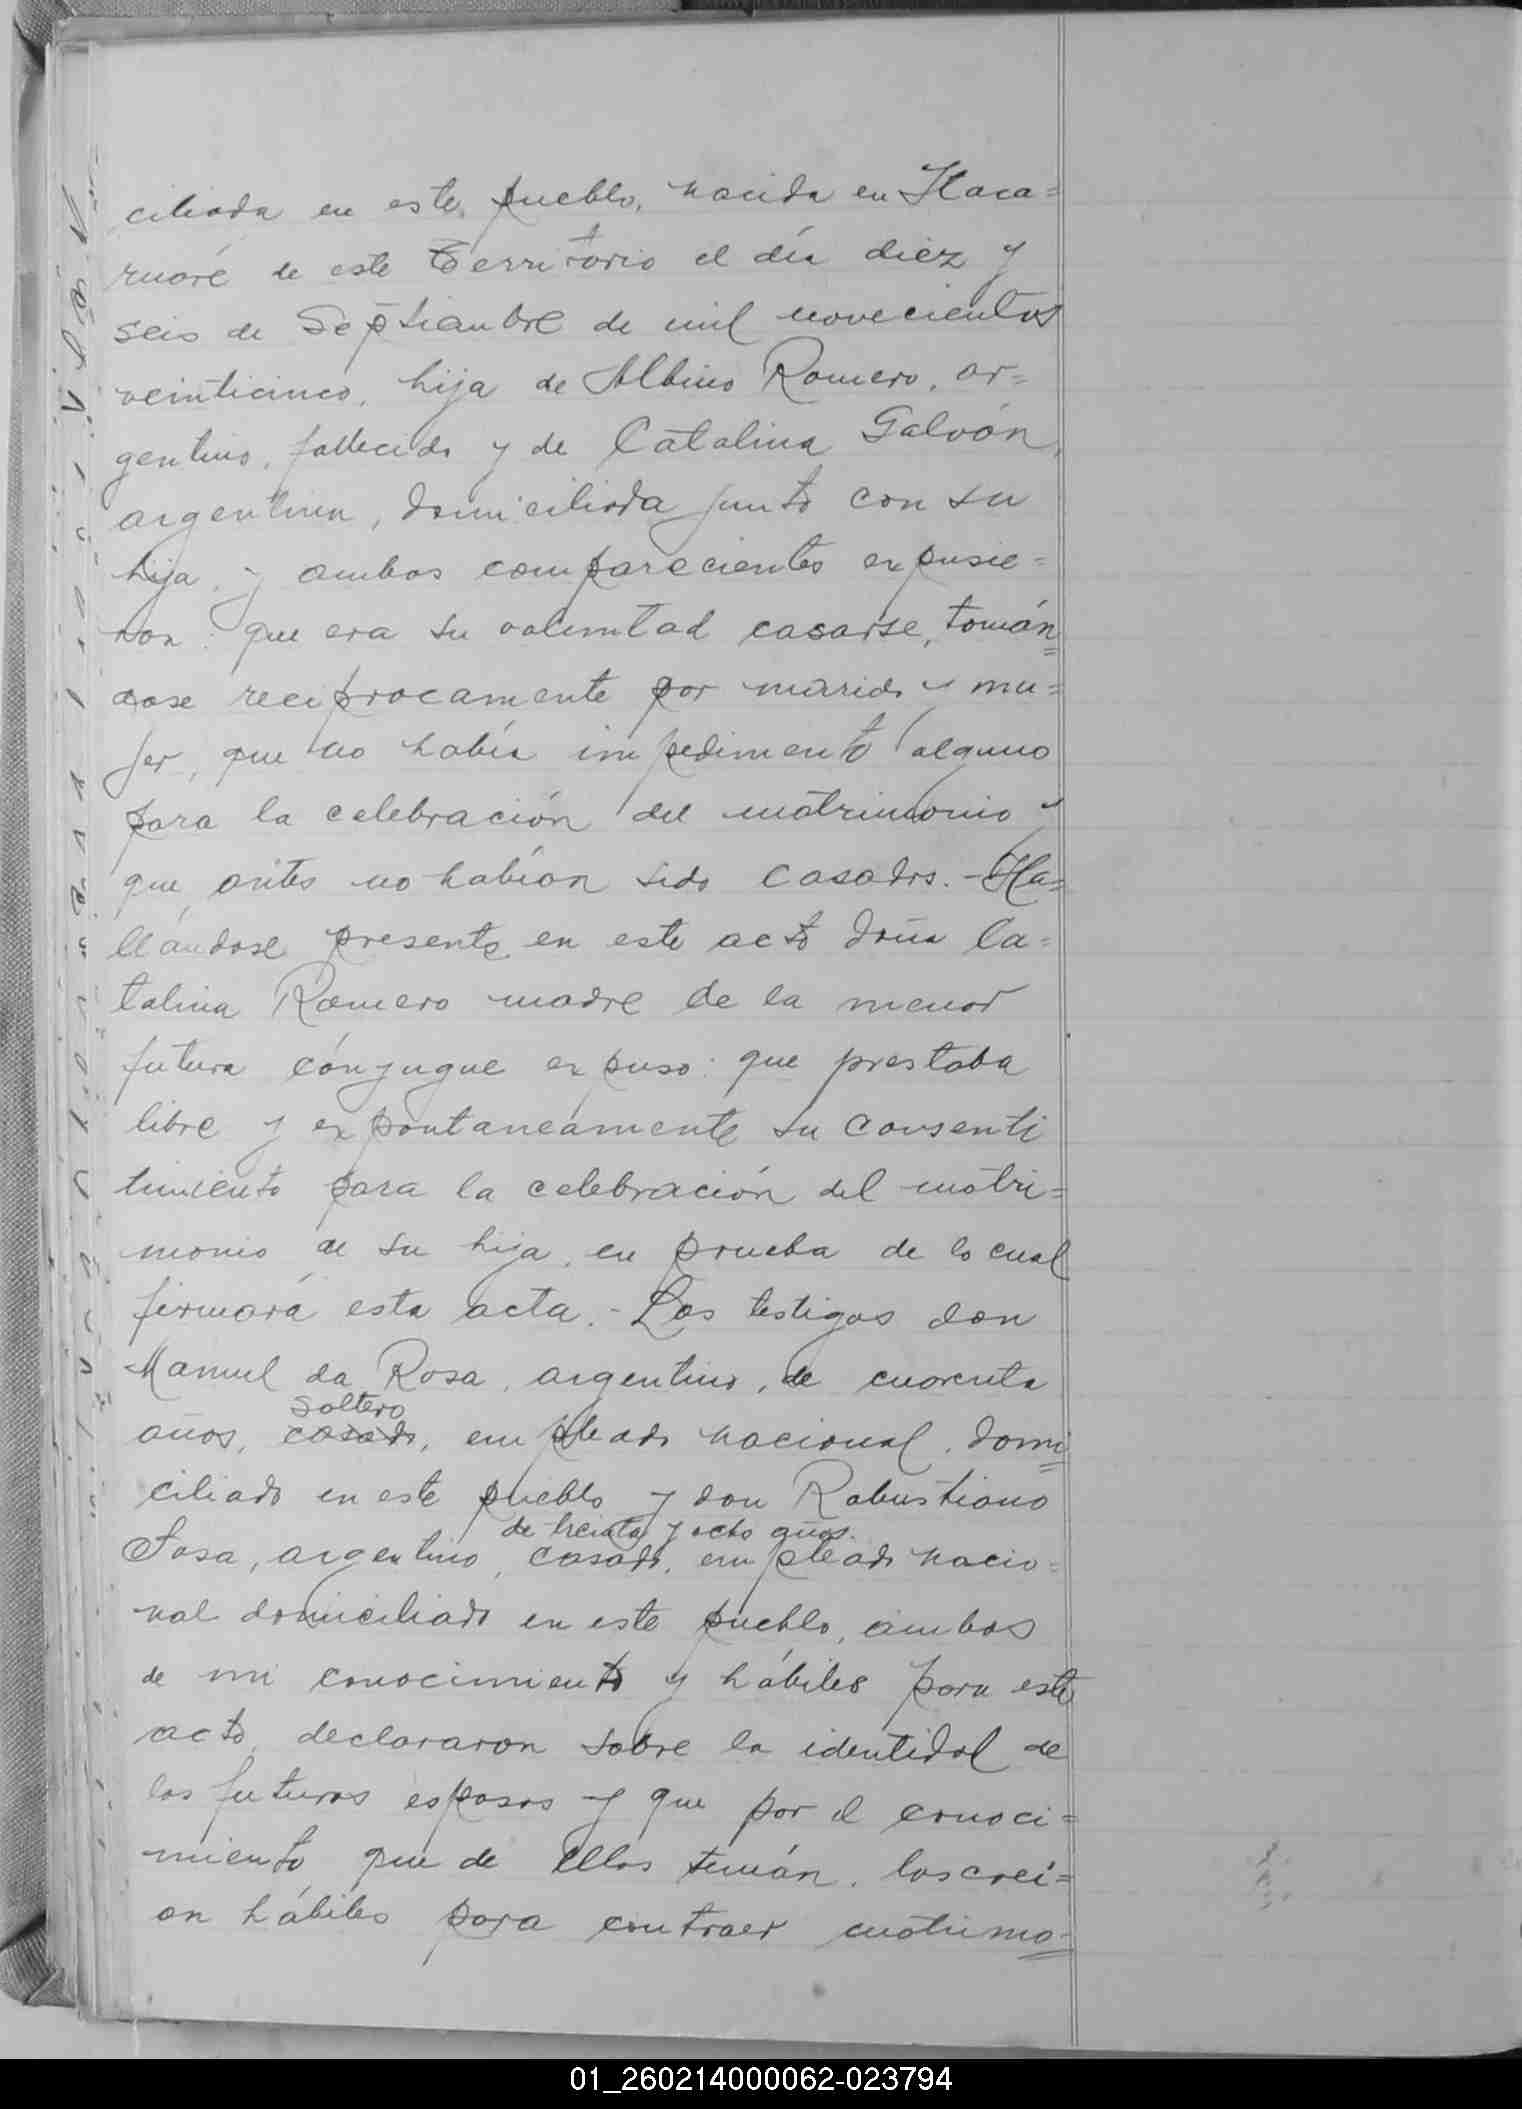 ciliada en este pueblo, nacida en Itaca=
ruaré de este Territorio el día diez y
seis de Septiembre de mil novecientos
veinticinco, hija de Albino Romero, ar=
gentino, fallecido y de Catalina Galvón,
argentina, domiciliada junto con su
hija, y ambos comparecientes expusie=
ron: que era su voluntad casarse, tomán=
dose reciprocamente por marido y mu=
jer, que no había impedimento alguno
para la celebración del matrimonio y
que antes no habían sido casados. - Ha=
llándose presente en este acto doña Ca=
talina Romero madre de la menor
futura cónyugue expuso: que prestaba
libre y expontaneamente su consenti
timiento para la celebración del matri=
monio de su hija, en prueba de lo cual
firmará esta acta. - Los testigos don
Manuel da Rosa, argentino, de cuarenta
soltero
años, casado, empleado nacional, domi=
ciliado en este pueblo y don Robustiano
de treinta y ocho años.
Sosa, argentino, casado, empleado nacio=
nal domiciliado en este pueblo, ambos
de mi conocimiento y hábiles para este
acto, declararon sobre la identidad de
los futuros esposos y que por el conoci=
miento que de ellos tenían, los creí=
an hábiles para contraer matrimo=
01_260214000062-023794